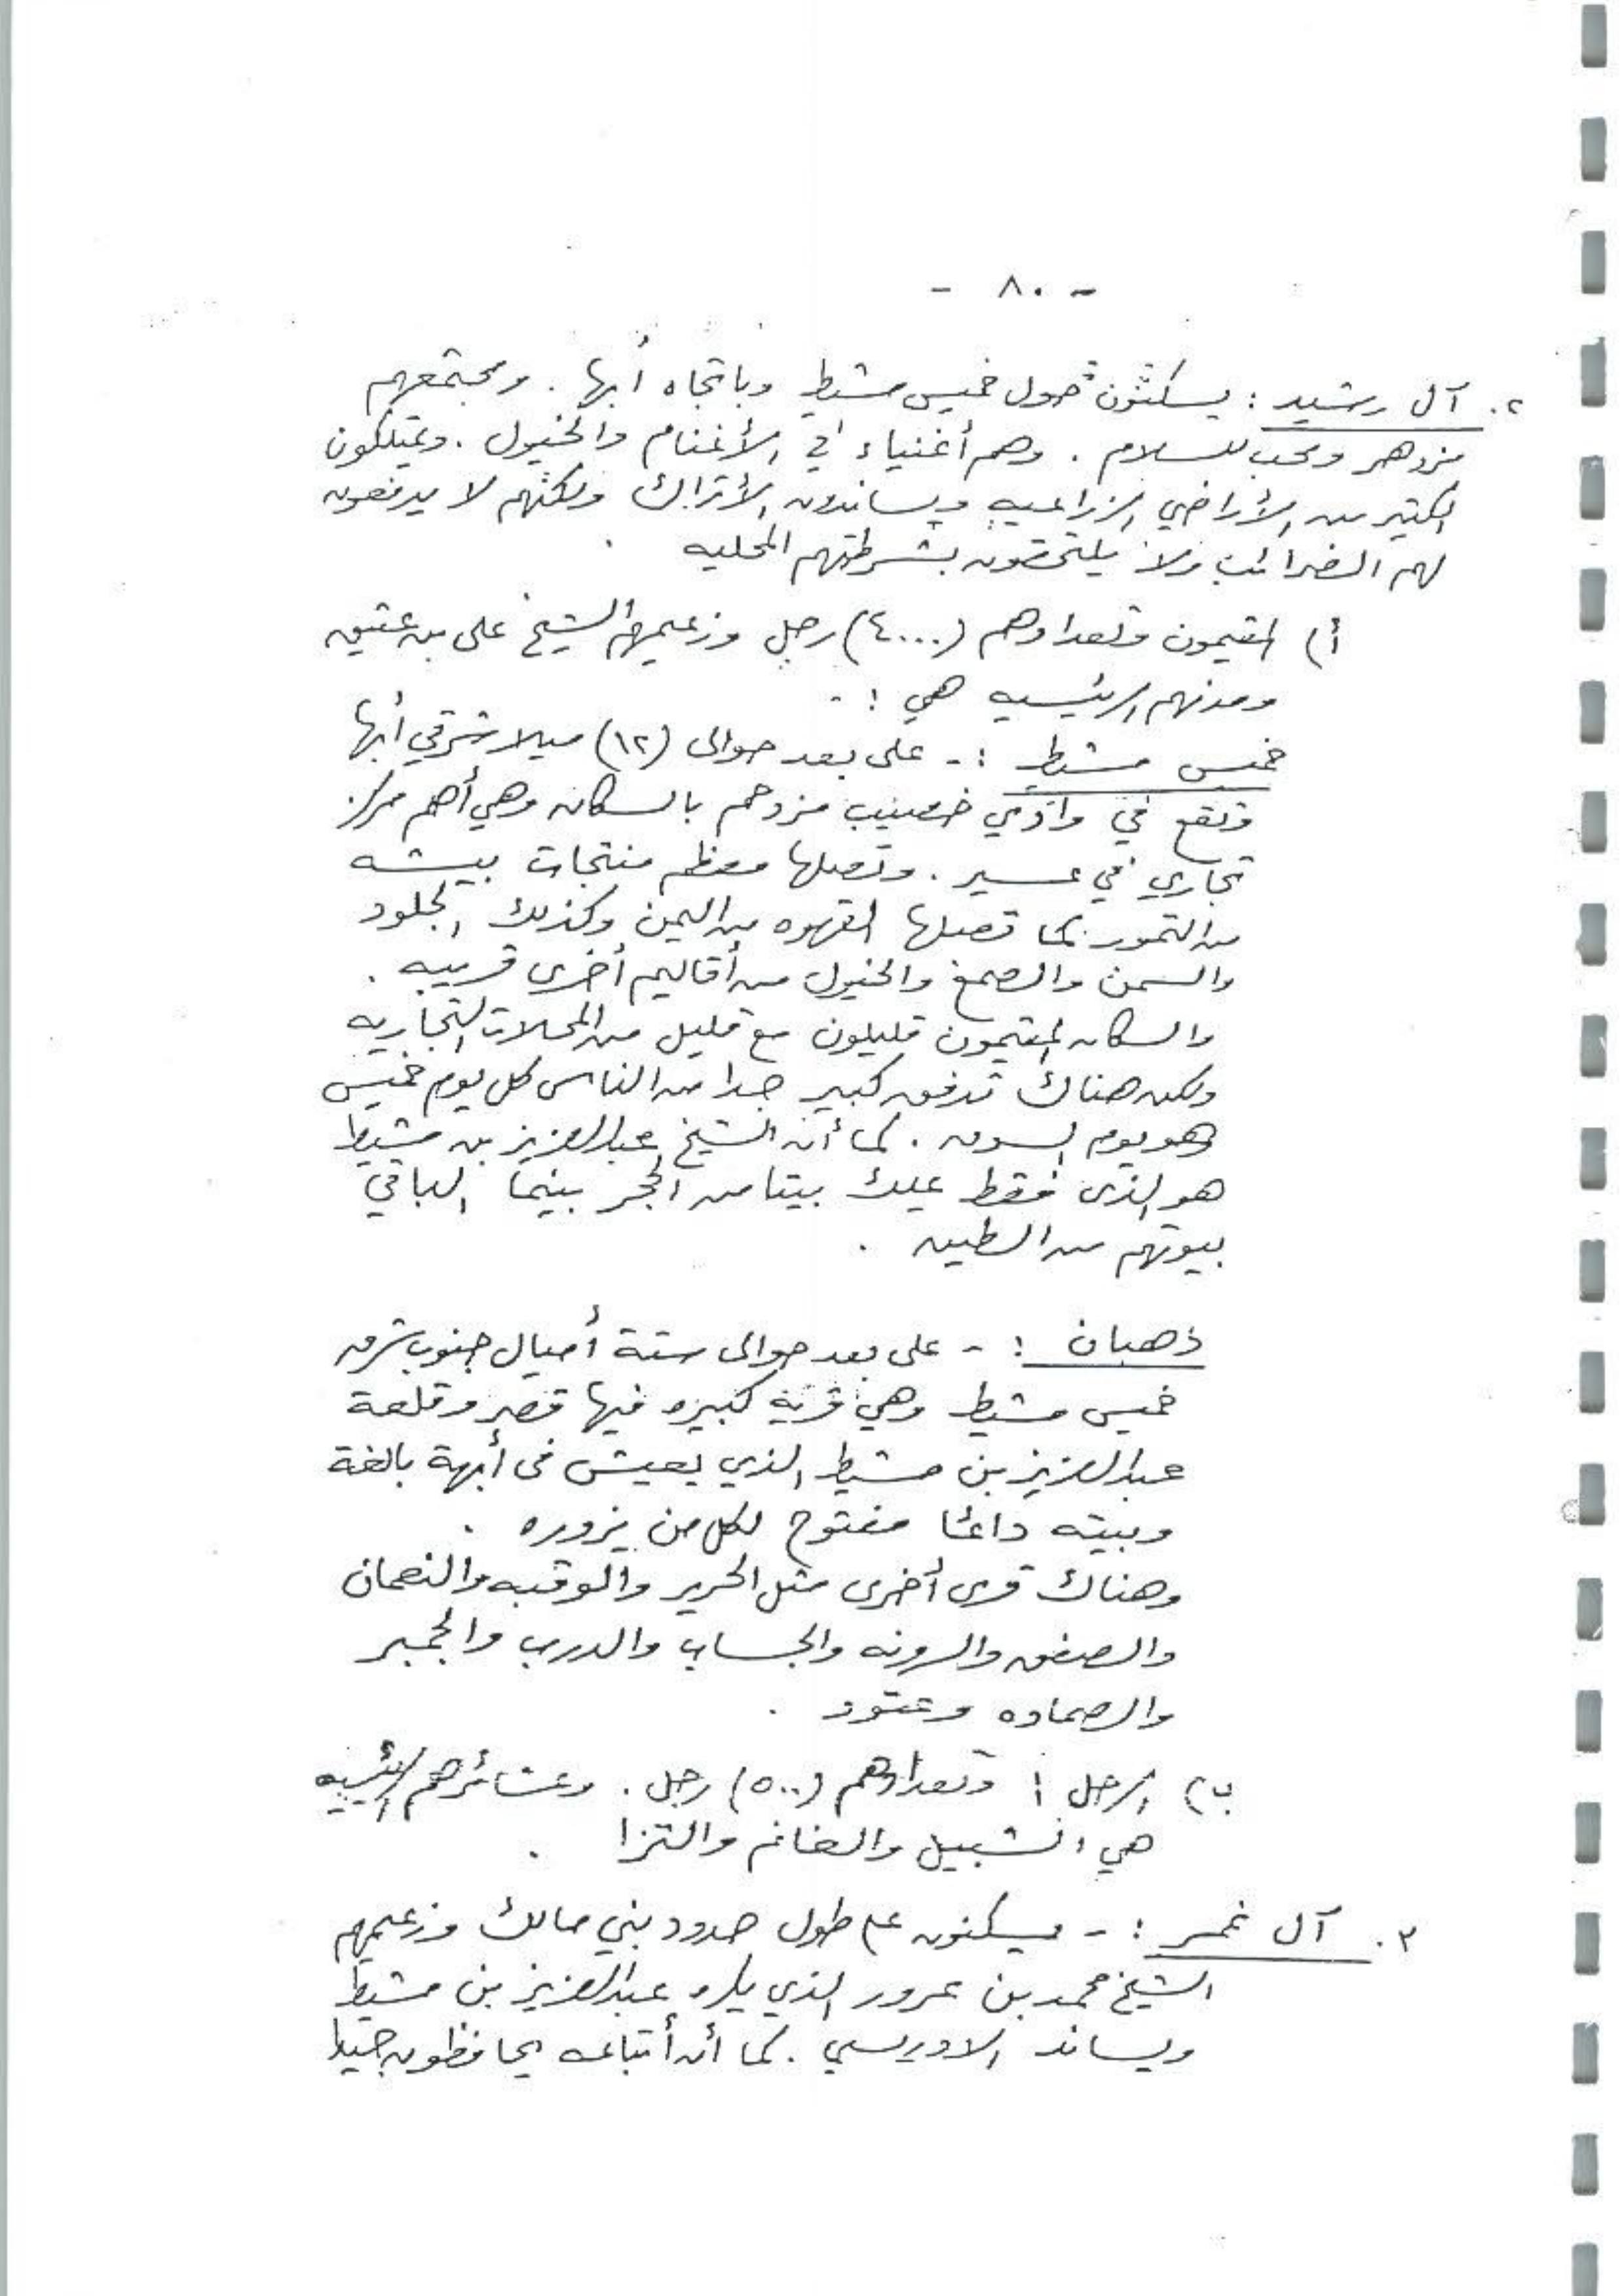 - ٨٠ -
٢. آل رشيد : يسكنون حول خميس مشيط وباتجاه أبها . ومجتمعهم
مزدهر ومحب للسلام . وهم أغنياء في الأغنام والخيول . ويمتلكون
الكثير من الأراضي الزراعيه ويساندون الأتراك ولكنهم لا يدفعون
لهم الضرائب ولا يلتحقون بشرطتهم المحليه .
أ) المقيمون وتعدادهم (٤٠٠٠) رجل وزعيمهم الشيخ على بن عتيق
ومدنهم الرئيسيه هي :-
خميس مشيط :- على بعد حوالى (١٢) ميلا شرقي أبها
وتقع في وادي خصيب مزدحم بالسكان وهي أهم مركز
تجاري في عسير . وتصلها معظم منتجات بيشه
من التمور كما تصلها القهوه من اليمن وكذلك الجلود
والسمن والصمغ والخيول من أقاليم أخرى قريبه .
والسكان المقيمون قليلون مع قليل من المحلات التجاريه
ولكن هناك تدفق كبير جدا من الناس كل يوم خميس
وهو يوم السوق . كما أن الشيخ عبدالعزيز بن مشيط
هو الذى فقط يملك بيتا من الحجر بينما الباقي
بيوتهم من الطين .
ذهبان :- على بعد حوالى ستة أميال جنوب شرق
خميس مشيط وهي قرية كبيره فيها قصر وقلعة
عبدالعزيز بن مشيط الذي يعيش فى أبهة بالغة
وبيته دائما مفتوح لكل من يزوره .
وهناك قرى أخرى مثل الحرير والوقبه والنعمان
والصفق والرونه والجساب والدرب والجمبر
والصماده وعتود .
ب) الرحل : وتعدادهم (٥٠٠) رجل . وعشائرهم الرئيسيه
هي الشبيل والغانم والتزا .
٣. آل غمر :- يسكنون على طول حدود بني مالك وزعيمهم
الشيخ محمد بن عرور الذي يكره عبدالعزيز بن مشيط
ويساند الادريسي . كما أن أتباعه يحافظون جيدا